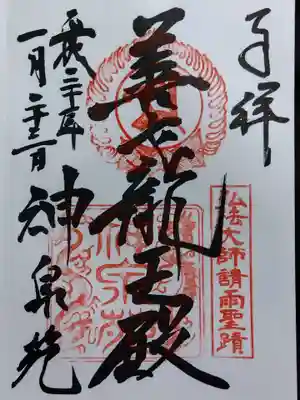 奉拝
弘法大師請雨聖蹟
善女龍王殿
平成二十年
一月二十三日
神泉苑